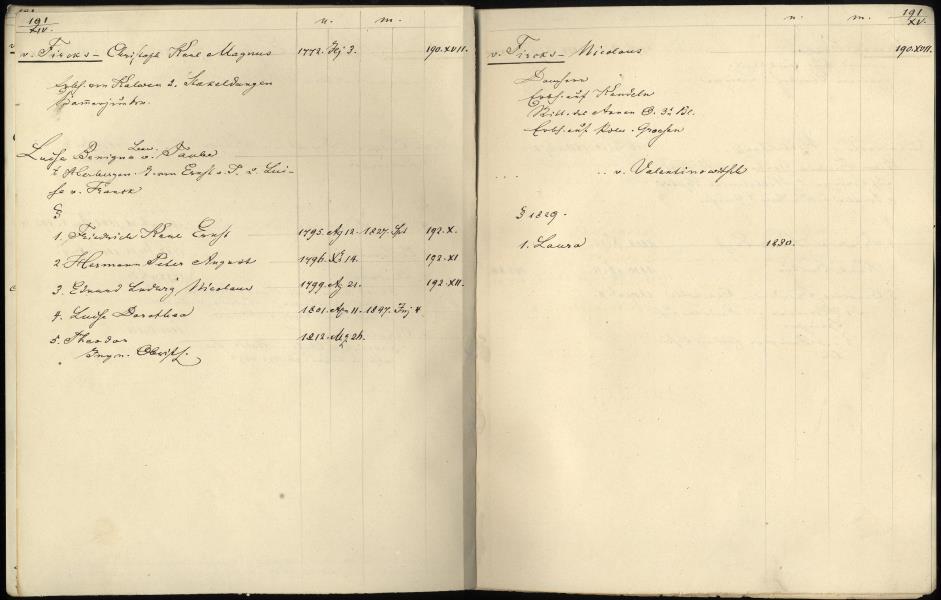 191
XIV.
n. m.
v. Fircks - Christoph Karl Magnus 1772. 3. 190.XVII.
Erbh. von Kalwen u. Stakeldangen
Kammerjunker.
Leon.
Luise Benigna v. Taube
v. Ernst v. T. u. Lui-
se v. Franck
§
1. Friedrich Karl Ernst 1795. Ag 12. 1827. Spt 192.X.
2 Hermann Peter August 1796. Xb 14. 192.XI
3. Eduard Ludwig Nicolaus 1799. Ag 21. 192.XII.
4. Luise Dorothea 1801. Apr 11. 1847. 4
5. Theodor 1812. 26.
Ingn. Obristl.
191
XV.
n. m.
v. Fircks - Nicolaus 190.XVII.
Domherr
Erbh. auf Kandeln
Ritt. des Annen O. 3r Kl.
Erbh. auf
.... .. v. Valentinowitsch
§ 1829.
1. Laura 1830.